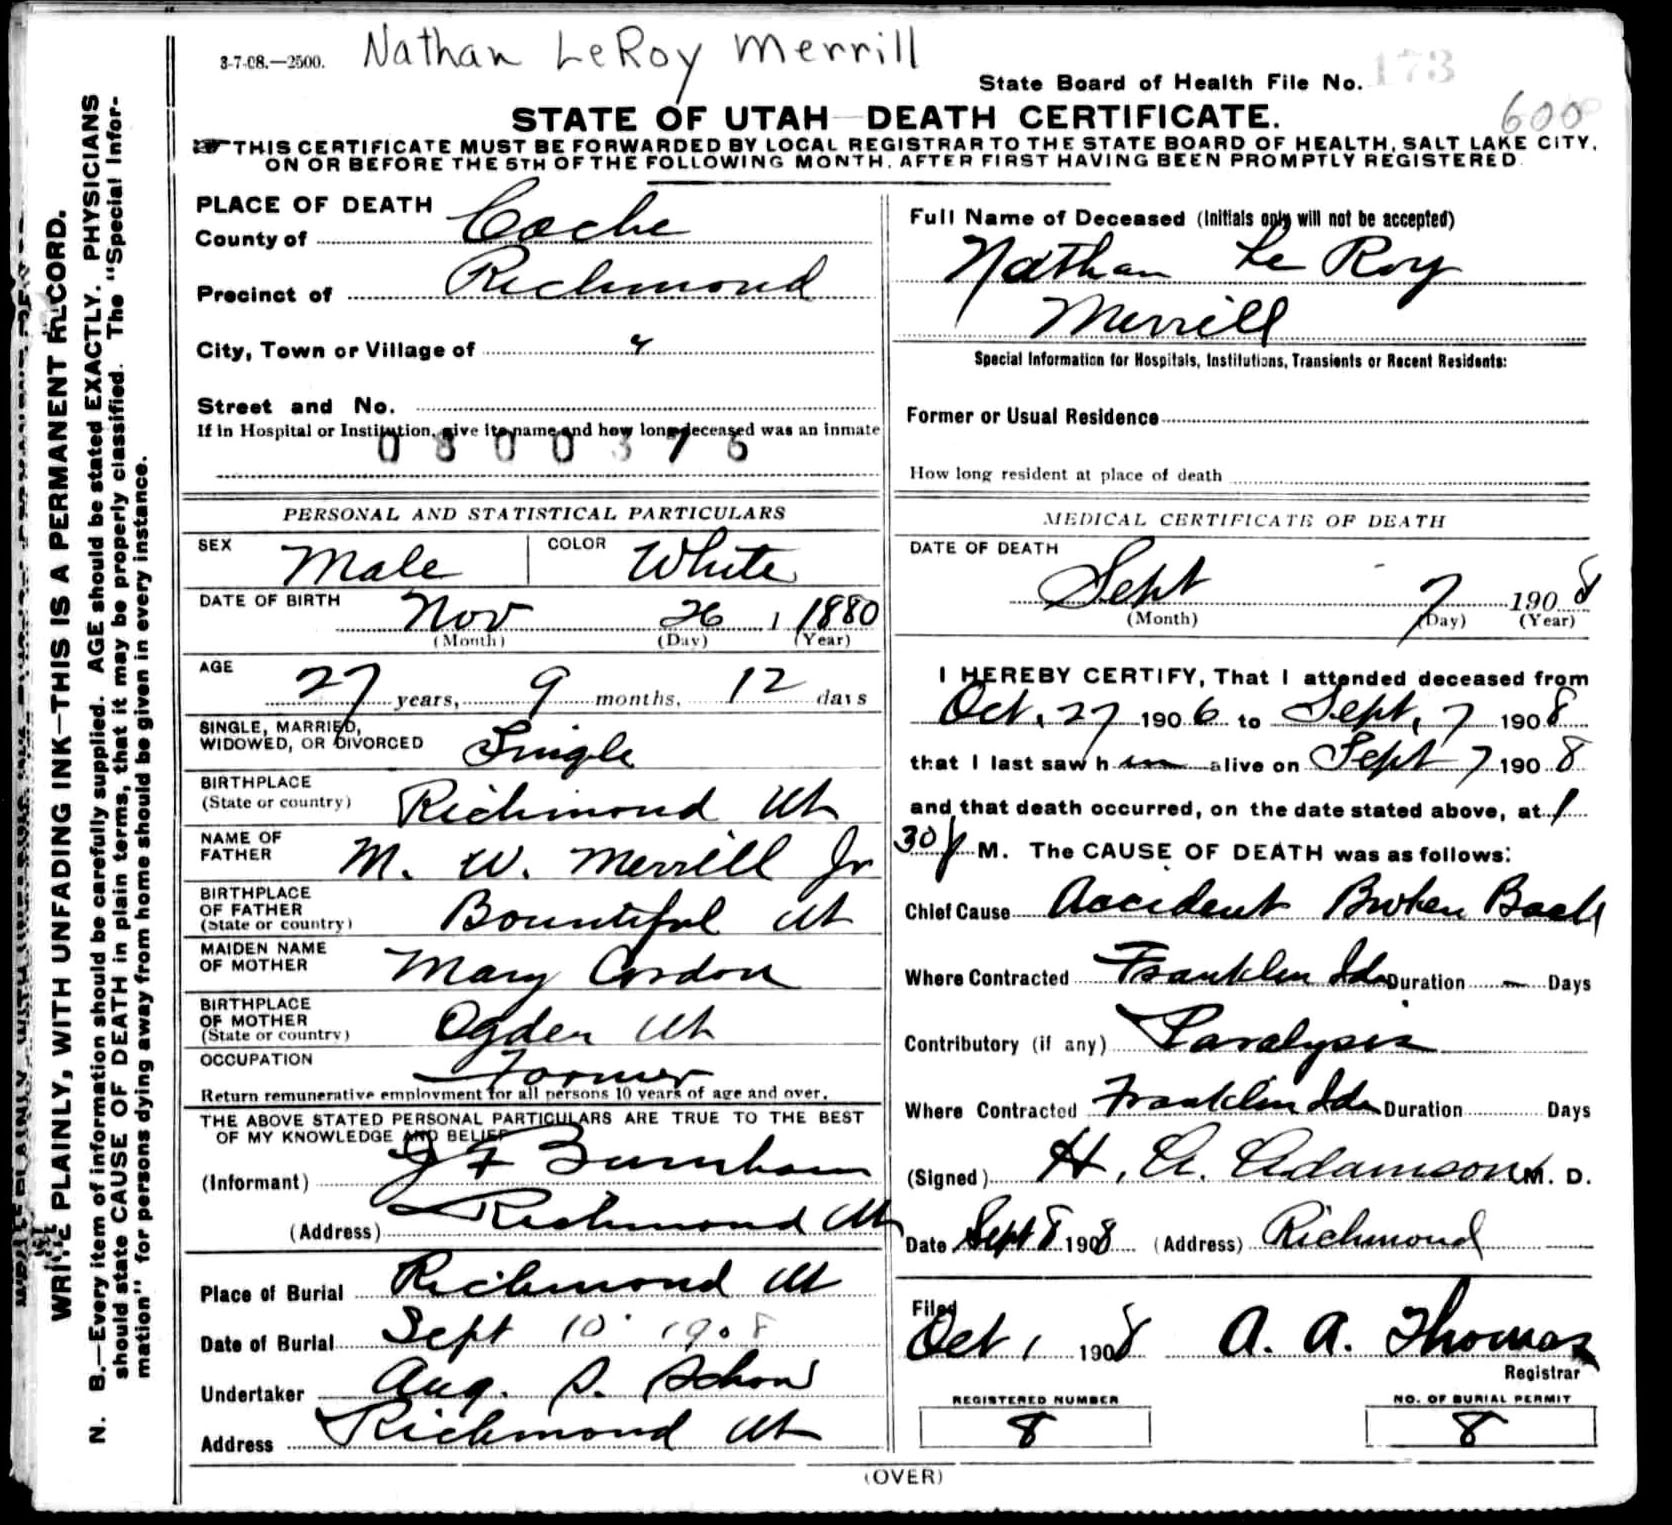 Nathan LeRoy Merrill
3-7-08.—2500.
State Board of Health File No. 173
600
STATE OF UTAH—DEATH CERTIFICATE.
THIS CERTIFICATE MUST BE FORWARDED BY LOCAL REGISTRAR TO THE STATE BOARD OF HEALTH, SALT LAKE CITY,
ON OR BEFORE THE 5TH OF THE FOLLOWING MONTH, AFTER FIRST HAVING BEEN PROMPTLY REGISTERED.
WRITE PLAINLY, WITH UNFADING INK—THIS IS A PERMANENT RECORD.
N. B.—Every item of information should be carefully supplied. AGE should be stated EXACTLY. PHYSICIANS
should state CAUSE OF DEATH in plain terms, that it may be properly classified. The "Special Infor-
mation" for persons dying away from home should be given in every instance.
PLACE OF DEATH
County of Cache
Precinct of Richmond
City, Town or Village of "
Street and No.
If in Hospital or Institution, give its name and how long deceased was an inmate
0800376
PERSONAL AND STATISTICAL PARTICULARS
SEX Male COLOR White
DATE OF BIRTH Nov 26, 1880
(Month) (Day) (Year)
AGE 27 years, 9 months, 12 days
SINGLE, MARRIED,
WIDOWED, OR DIVORCED Single
BIRTHPLACE
(State or country) Richmond Ut
NAME OF
FATHER M. W. Merrill Jr
BIRTHPLACE
OF FATHER
(State or country) Bountiful Ut
MAIDEN NAME
OF MOTHER Mary Cordon
BIRTHPLACE
OF MOTHER
(State or country) Ogden Ut
OCCUPATION Farmer
Return remunerative employment for all persons 10 years of age and over.
THE ABOVE STATED PERSONAL PARTICULARS ARE TRUE TO THE BEST
OF MY KNOWLEDGE AND BELIEF
(Informant) J F Burnham
(Address) Richmond Ut
Place of Burial Richmond Ut
Date of Burial Sept 10 1908
Undertaker Aug. S. Schow
Address Richmond Ut
Full Name of Deceased (Initials only will not be accepted)
Nathan Le Roy
Merrill
Special Information for Hospitals, Institutions, Transients or Recent Residents:
Former or Usual Residence
How long resident at place of death
MEDICAL CERTIFICATE OF DEATH
DATE OF DEATH
Sept 7 1908
(Month) (Day) (Year)
I HEREBY CERTIFY, That I attended deceased from
Oct. 27 1906 to Sept. 7 1908
that I last saw him alive on Sept 7 1908
and that death occurred, on the date stated above, at 1
30 P M. The CAUSE OF DEATH was as follows:
Chief Cause Accident Broken Back
Where Contracted Franklin Ida Duration — Days
Contributory (if any) Paralysis
Where Contracted Franklin Ida Duration Days
(Signed) H. A. Adamson M. D.
Date Sept 8 1908 (Address) Richmond
Filed
Oct 1 1908 A. A. Thomas
Registrar
REGISTERED NUMBER
8
NO. OF BURIAL PERMIT
8
(OVER)